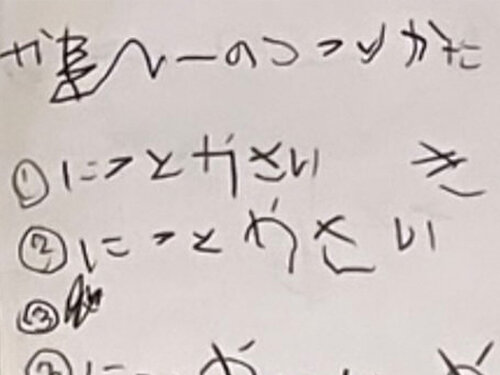 カレーのつくりかた
①にくとやさい き
②にくとやさい
③